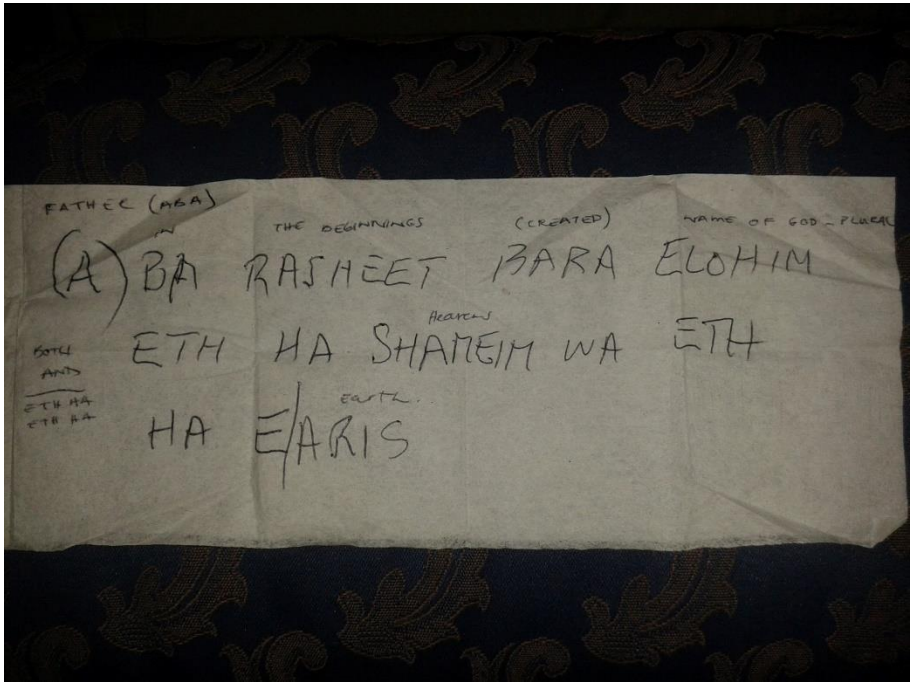 FATHER (ABA)
IN THE BEGINNINGS (CREATED) NAME OF GOD - PLURAL
(A) BA RASHEET BARA ELOHIM
Heavens
ETH HA SHAMEIM WA ETH
BOTH
AND
Earth.
ETH HA
ETH HA
HA E/ARIS